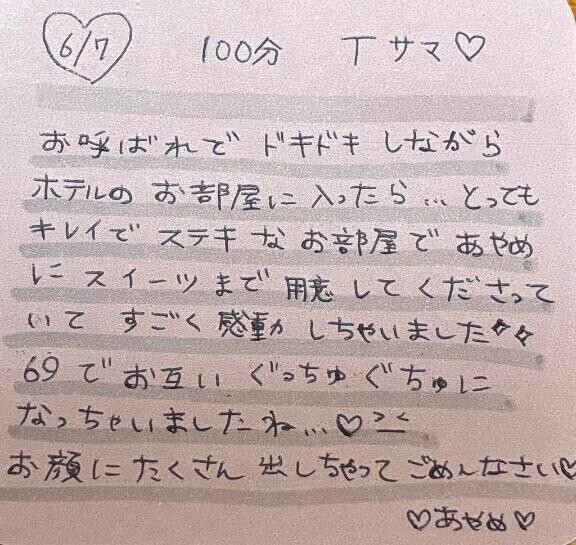 6/7 100分 Tサマ♡
お呼ばれで ドキドキ しながら
ホテルの お部屋に 入ったら... とっても
キレイで ステキな お部屋で あやめ
に スイーツまで 用意 してくださって
いて すごく 感動 しちゃいました✧✧
69で お互い ぐっちゅぐちゅに
なっちゃいましたね...♡><
お顔に たくさん 出しちゃって ごめんなさい♡
♡あやめ♡